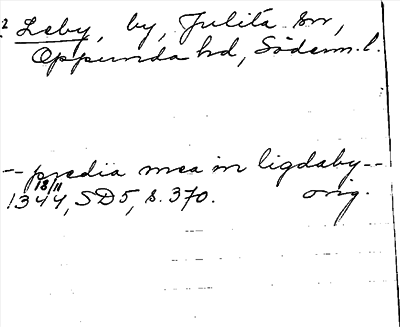 2 Leby, by, Julita sn,
Oppunda hd, Söderm. l.
-- predia mea in ligdaby --
18/11
1344, SD5, s. 370. orig.